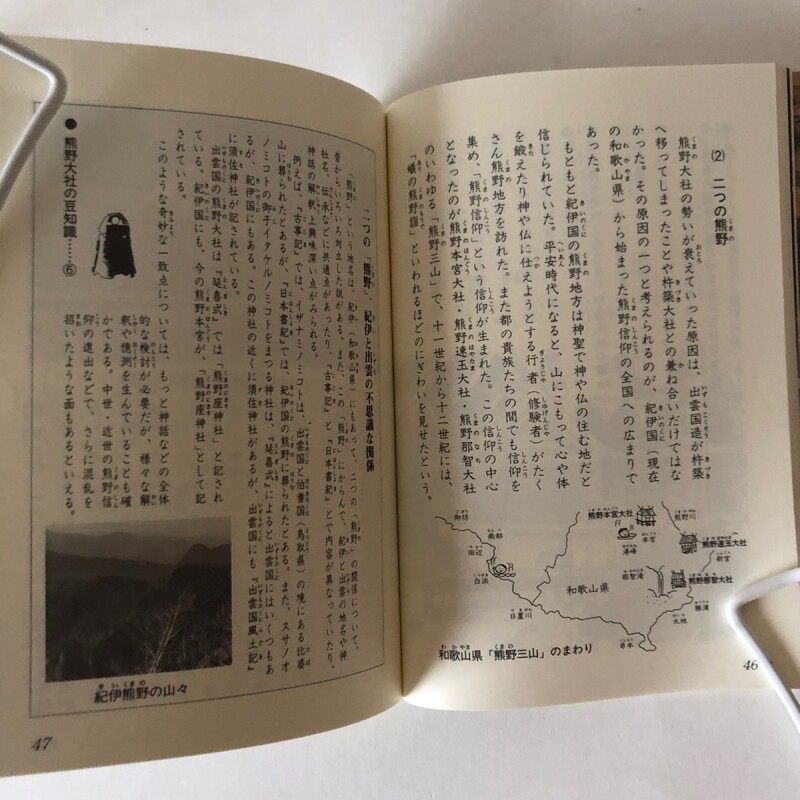 (2) 二つの熊野
熊野大社の勢いが衰えていった原因は、出雲国造が杵築
へ移ってしまったことや杵築大社との兼ね合いだけではな
かった。その原因の一つと考えられるのが、紀伊国（現在
の和歌山県）から始まった熊野信仰の全国への広まりで
あった。
もともと紀伊国の熊野地方は神聖で神や仏の住む地だと
信じられていた。平安時代になると、山にこもって心や体
を鍛えたり神や仏に仕えようとする行者（修験者）がたく
さん熊野地方を訪れた。また都の貴族たちの間でも信仰を
集め、「熊野信仰」という信仰が生まれた。この信仰の中心
となったのが熊野本宮大社・熊野速玉大社・熊野那智大社
のいわゆる「熊野三山」で、十一世紀から十二世紀には、
「蟻の熊野詣」といわれるほどのにぎわいを見せたという。
熊野本宮大社
熊野川
本宮
湯峰
熊野速玉大社
新宮
那智滝
熊野那智大社
勝浦
太地
串本
和歌山県
御坊
南部
田辺
白浜
日置川
和歌山県「熊野三山」のまわり
46
二つの「熊野」、紀伊と出雲の不思議な関係
「熊野」という地名は、紀伊（和歌山県）にもあって、二つの「熊野」の関係について、
昔からいろいろ対立した説がある。また、この「熊野」にからんで、紀伊と出雲の地名や神
社名、伝承などに共通点があったり、『古事記』と『日本書紀』とで内容が異なっていたり、
神話の解釈上興味深い点がみられる。
例えば、『古事記』では、イザナミノミコトは、出雲国と伯耆国（鳥取県）の境にある比婆
山に葬られたとあるが、『日本書紀』では、紀伊国の熊野に葬られたとある。また、スサノオ
ノミコトの御子イタケルノミコトをまつる神社は、『延喜式』によると出雲国にはいくつもあ
るが、紀伊国にもある。この神社の近くに須佐神社があるが、出雲国にも『出雲国風土記』
に須佐神社が記されている。
出雲国の熊野大社は『延喜式』では「熊野坐神社」と記され
ている。紀伊国にも、今の熊野本宮が、「熊野座神社」として記
されている。
このような奇妙な一致点については、もっと神話などの全体
的な検討が必要だが、様々な解
釈や憶測を生んでいることも確
かである。中世・近世の熊野信
仰の進出などで、さらに混乱を
招いたような面もあるといえる。
● 熊野大社の豆知識……⑥
紀伊熊野の山々
47